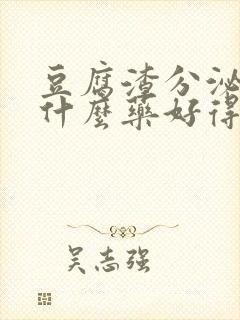 豆腐渣分泌
什麼藥好得
吴志强